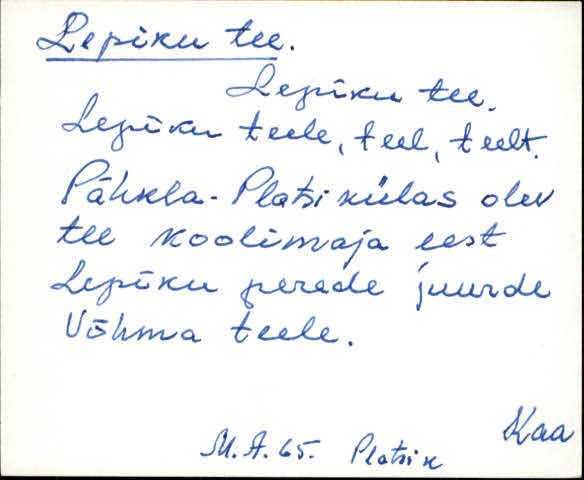 Lepiku tee.
Lepiku tee.
Lepiku teele, teel, teelt.
Pähkla-Platsi külas olev
tee koolimaja eest
Lepiku perede juurde
Võhma teele.
Kaa
M. A. 65. Platsi k